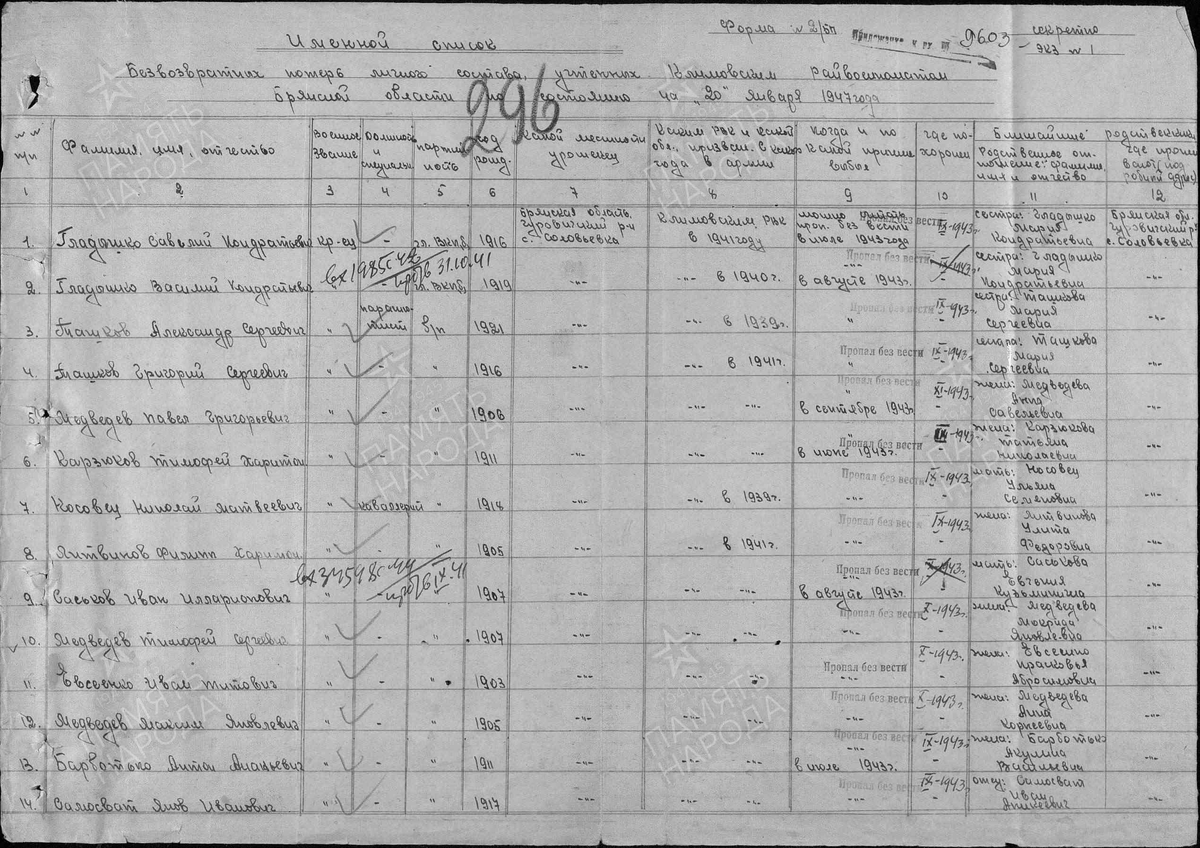 Форма № 2/БП
Приложение к вх. №
9603
секретно
экз № 1
Именной список
Безвозвратных потерь личного состава, учтенных Климовским райвоенкоматом
Брянской области по состоянию на "20" января 1947 года
296
№ № п/п
Фамилия, имя, отчество
Военное звание
партийность
год рожд.
какой местности уроженец
Когда и по какой причине выбыл
где похоронен
Ближайшие родственники
Родственное отношение: фамилия, имя и отчество
1 2 3 4 5 6 7 8 9 10 11 12
1. Гладышко Савелий Кондратьевич кр-ец - чл. ВКПб 1916 Брянская область, Чуровичский р-н с. Соловьевка Климовским РВК в 1941 году можно считать проп. без вести в июле 1943 года Пропал без вести IX-1943г. сестра: Гладышко Мария Кондратьевна Брянская обл. Чуровичский р-н с. Соловьевка
вх 19850 31.10.41
2. Гладышко Василий Кондратьевич чл. ВКПб 1919 -"- -"- в 1940 г. -"- в августе 1943 г. Пропал без вести IX-1943г. сестра: Гладышко Мария Кондратьевна -"-
3. Ташков Александр Сергеевич " парашютист б/п 1921 -"- -"- в 1939 г. " Пропал без вести IX-1943г. - сестра: Ташкова Мария Сергеевна -"-
4. Ташков Григорий Сергеевич " - " 1916 -"- -"- в 1941 г. " Пропал без вести IX-1943г. - Ташкова Мария Сергеевна -"-
5. Медведев Павел Григорьевич " - " 1906 -"- -"- -"- " в сентябре 1943 г. Пропал без вести XI-1943г. - жена: Медведева Анна Савельевна -"-
6. Карзюков Тимофей Харитон " - " 1911 -"- -"- -"- " в июне 1943 г. Пропал без вести IX-1943г. - жена: Карзюкова Татьяна Николаевна -"-
7. Косовец Николай Матвеевич " кавалерий " 1918 -"- -"- в 1939 г. -"- Пропал без вести IX-1943г. - мать: Косовец Ульяна Семеновна -"-
8. Литвинов Филипп Харитон " - " 1905 -"- -"- в 1941 г. -"- Пропал без вести IX-1943г. - жена: Литвинова Улита Федоровна -"-
9. Саськов Иван Илларионович " 1907 -"- -"- -"- -"- в августе 1943 г. Пропал без вести X-1943г. мать: Саськова Евгения Кузьминична -"-
10. Медведев Тимофей Сергеевич " - " 1907 -"- -"- -"- -"- Пропал без вести X-1943г. - жена: Медведева Мокрида Яковлевна -"-
11. Евсеенко Иван Титович " - " 1903 -"- -"- -"- -"- Пропал без вести X-1943г. - жена: Евсеенко Прасковья Абросимовна -"-
12. Медведев Максим Яковлевич " - " 1905 -"- -"- -"- -"- Пропал без вести X-1943г. - жена: Медведева Анна Корнеевна -"-
13. Барботько Антон " - " 1911 -"- -"- -"- -"- в июле 1943 г. Пропал без вести IX-1943г. - жена: Барботько Акулина Васильевна -"-
14. Самосват Яков Иванович " - " 1917 -"- -"- -"- -"- Пропал без вести IX-1943г. - отец: Самосват Иван -"-
ПАМЯТЬ НАРОДА